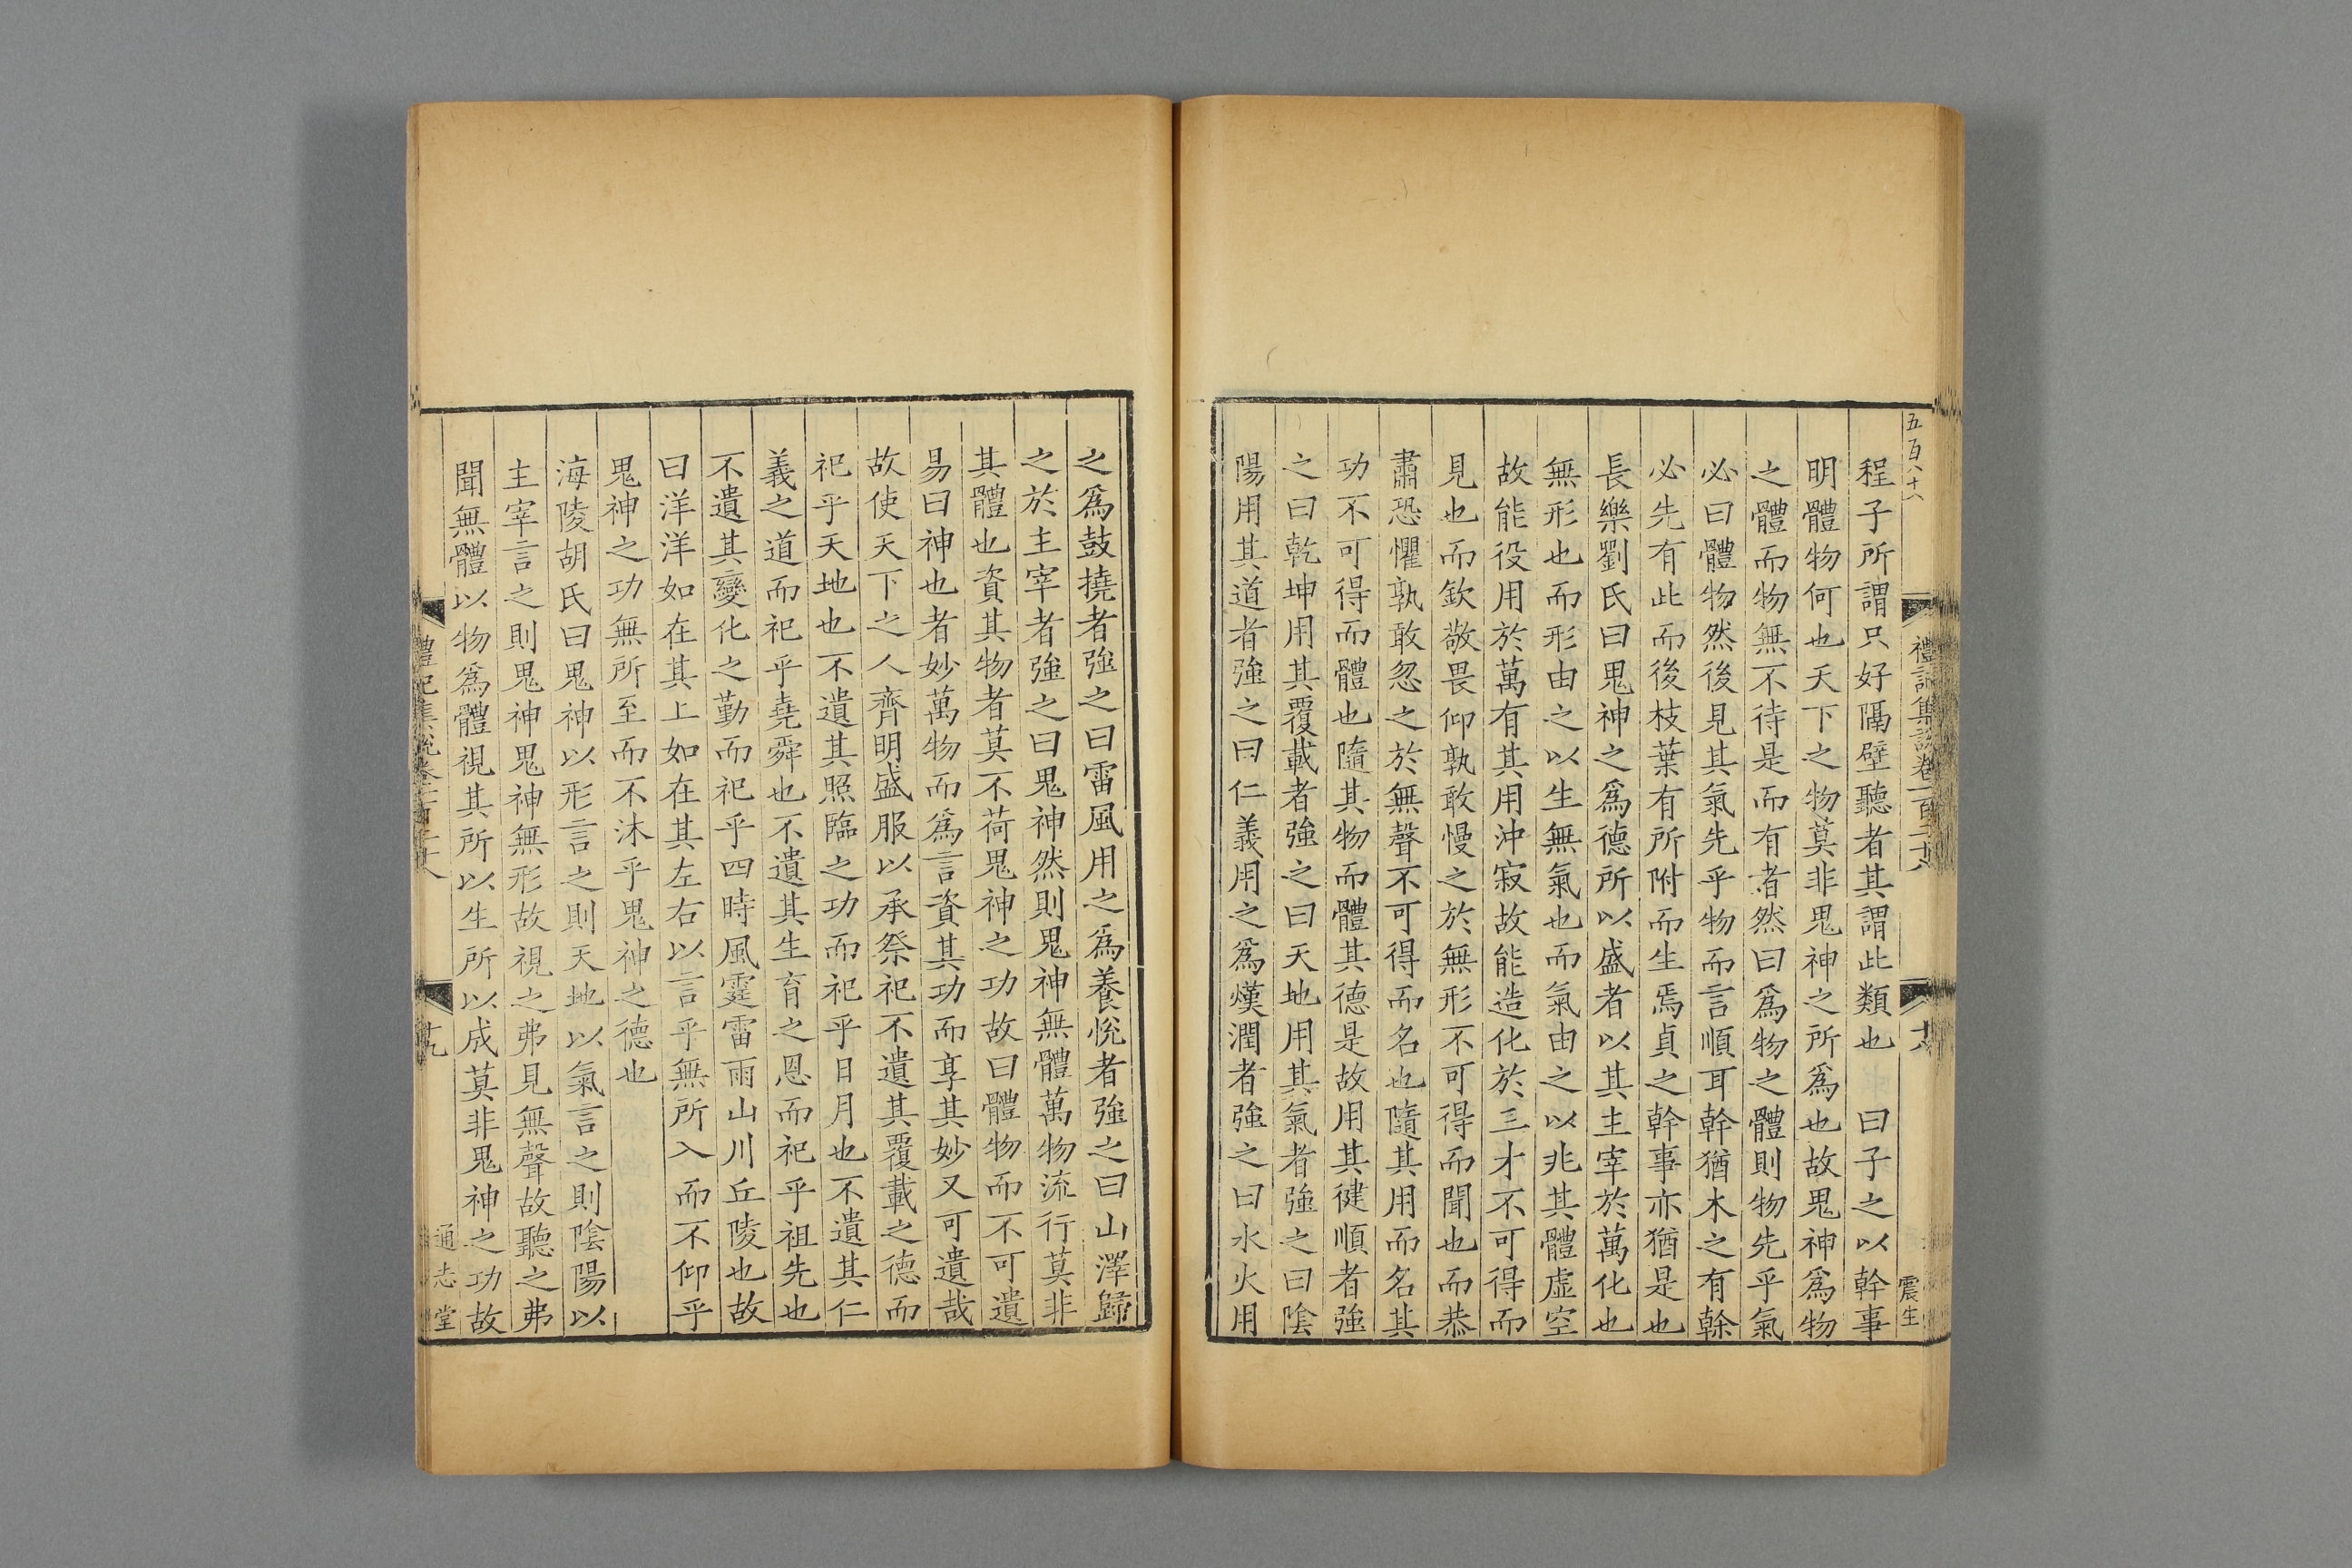 五百八十八
禮記集說卷一百二十八
十八
震生
程子所謂只好隔壁聽者其謂此類也 曰子之以幹事
明體物何也天下之物莫非鬼神之所爲也故鬼神爲物
之體而物無不待是而有者然曰爲物之體則物先乎氣
必曰體物然後見其氣先乎物而言順耳幹猶木之有榦
必先有此而後枝葉有所附而生焉貞之幹事亦猶是也
長樂劉氏曰鬼神之爲德所以盛者以其主宰於萬化也
無形也而形由之以生無氣也而氣由之以兆其體虛空
故能役用於萬有其用沖寂故能造化於三才不可得而
見也而欽敬畏仰孰敢慢之於無形不可得而聞也而恭
肅恐懼孰敢忽之於無聲不可得而名也隨其用而名其
功不可得而體也隨其物而體其德是故用其健順者強
之曰乾坤用其覆載者強之曰天地用其氣者強之曰陰
陽用其道者強之曰仁義用之爲熯潤者強之曰水火用
之爲鼓撓者強之曰雷風用之爲養悅者強之曰山澤歸
之於主宰者強之曰鬼神然則鬼神無體萬物流行莫非
其體也資其物者莫不荷鬼神之功故曰體物而不可遺
易曰神也者妙萬物而爲言資其功而享其妙又可遺哉
故使天下之人齊明盛服以承祭祀不遺其覆載之德而
祀乎天地也不遺其照臨之功而祀乎日月也不遺其仁
義之道而祀乎堯舜也不遺其生育之恩而祀乎祖先也
不遺其變化之勤而祀乎四時風霆雷雨山川丘陵也故
曰洋洋如在其上如在其左右以言乎無所入而不仰乎
鬼神之功無所至而不沐乎鬼神之德也
海陵胡氏曰鬼神以形言之則天地以氣言之則陰陽以
主宰言之則鬼神鬼神無形故視之弗見無聲故聽之弗
聞無體以物爲體視其所以生所以成莫非鬼神之功故
禮記集說卷一百二十八
十九
通志堂